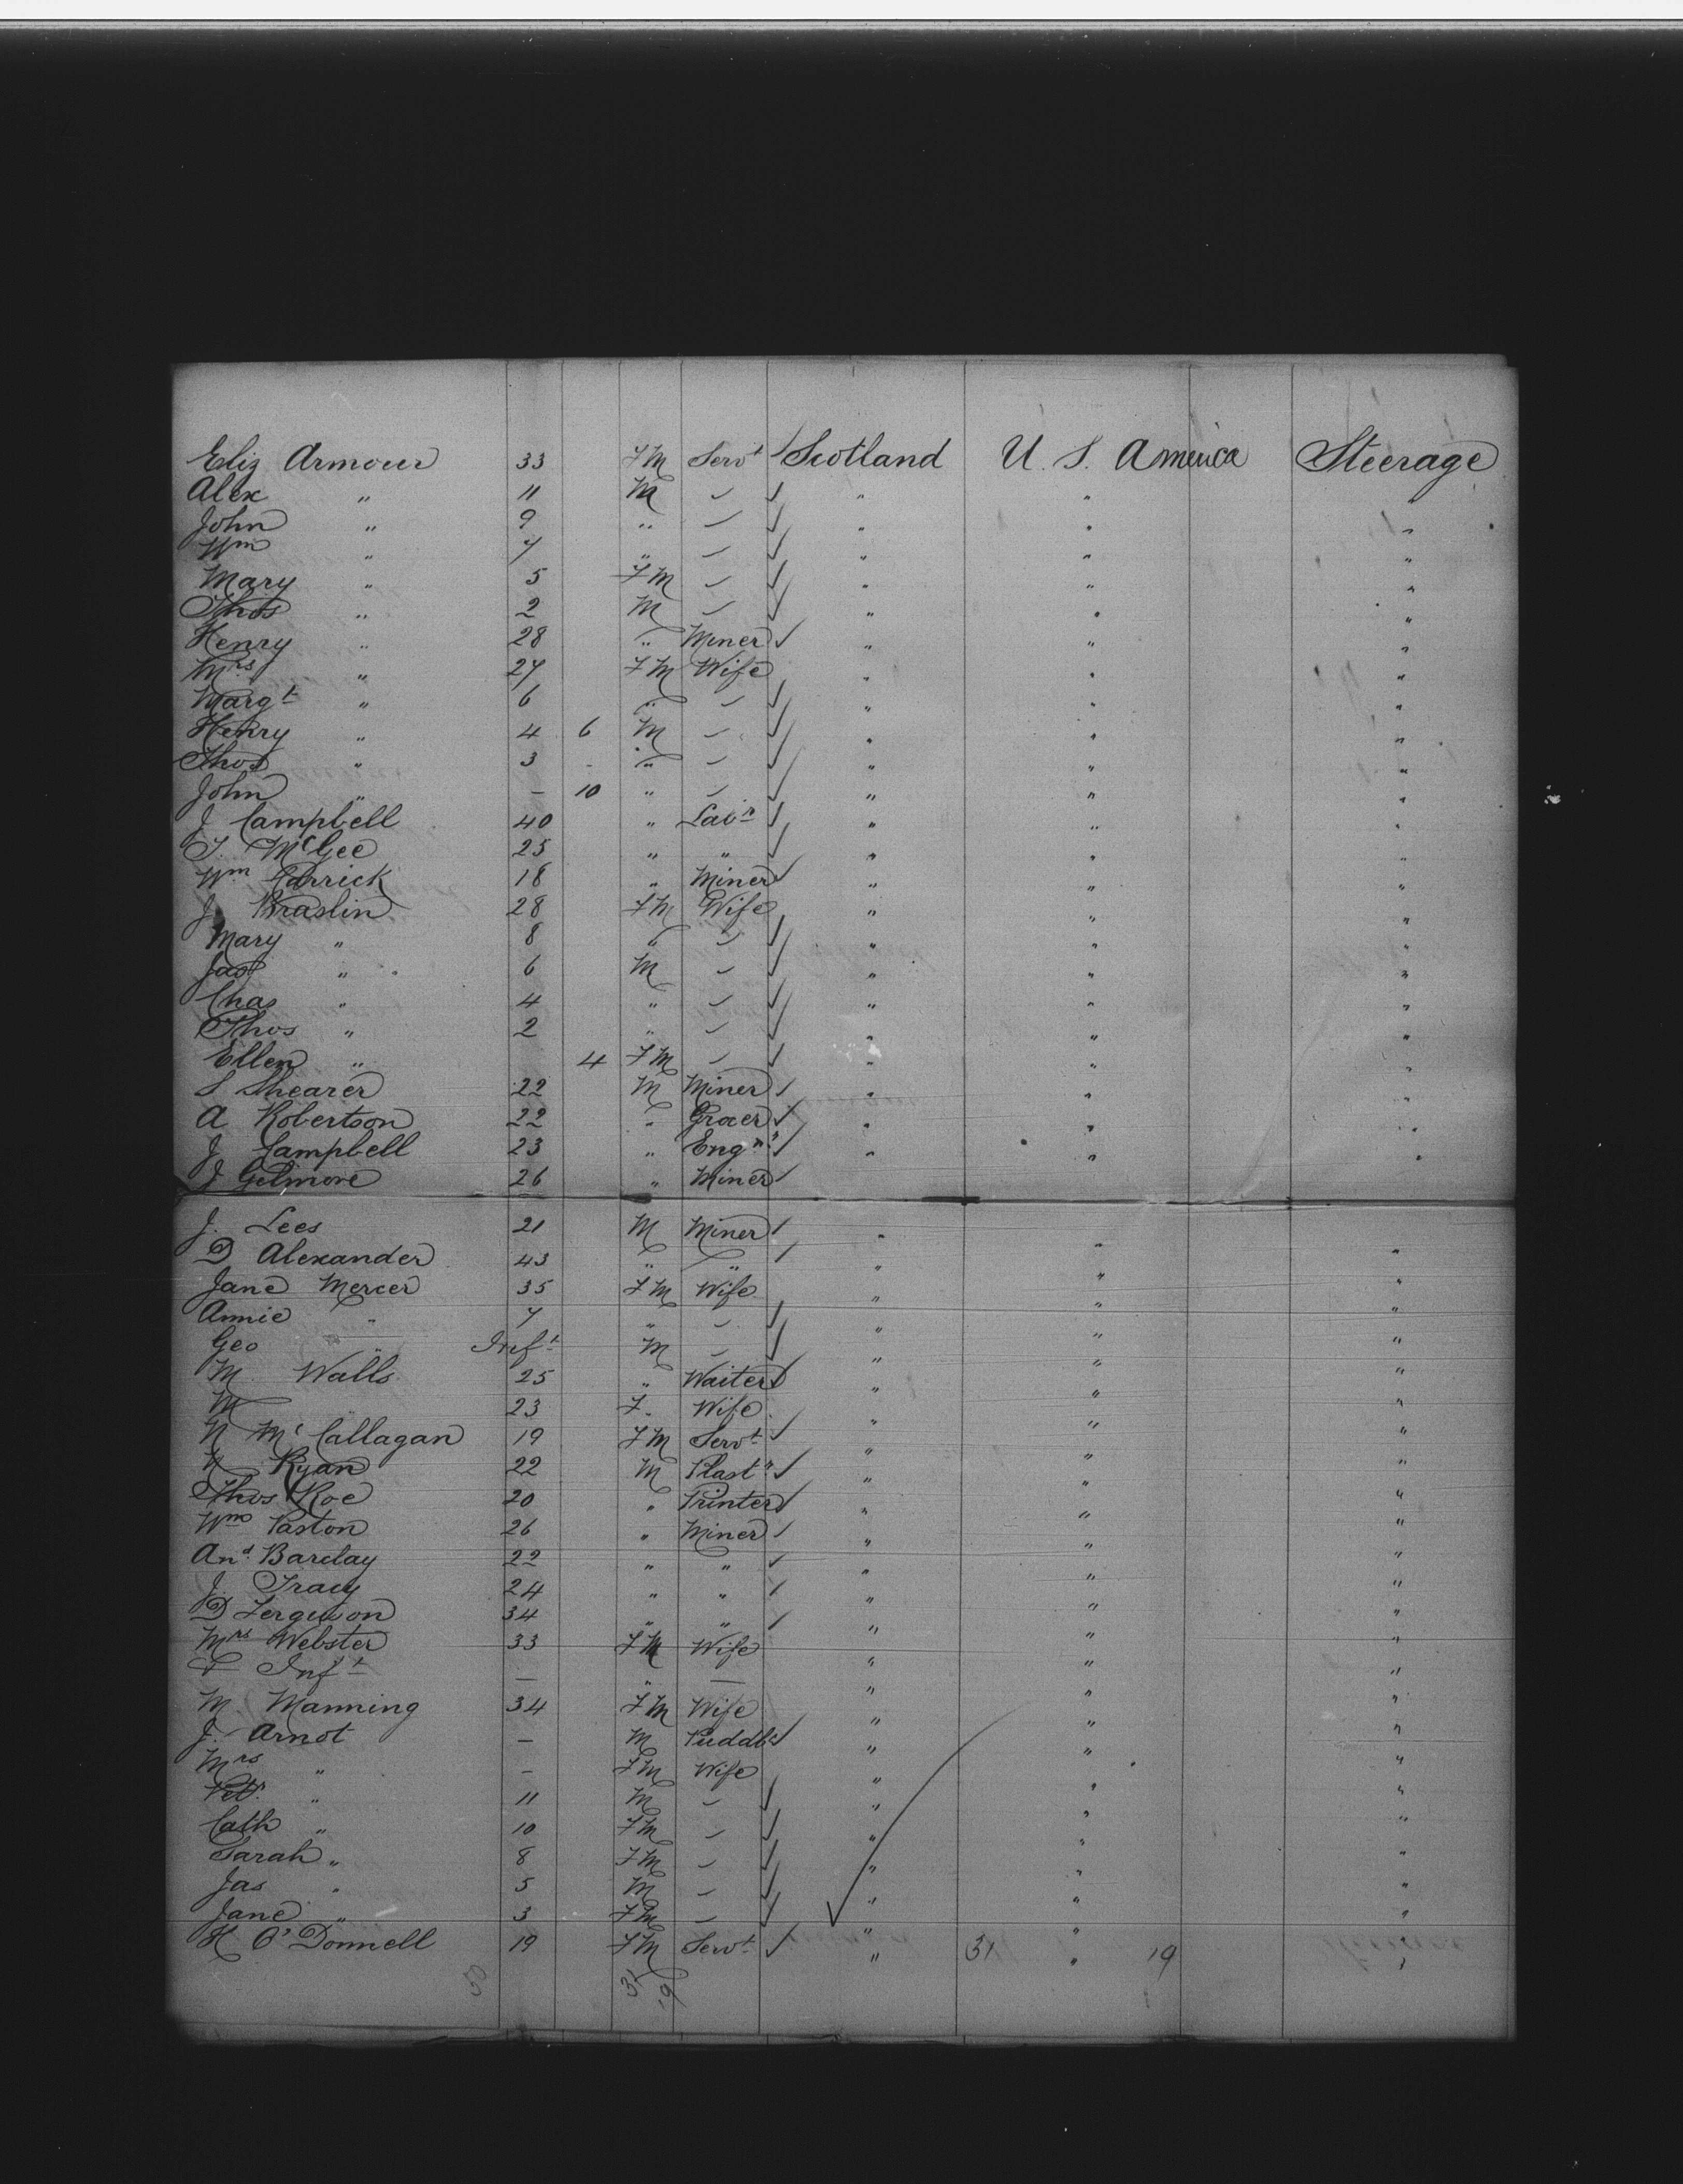 Eliz Armour 33 FM Servt Scotland U. S. America Steerage
Alex " 11 M " " "
John " 9 " " " "
Wm " 7 " " " "
Mary " 5 FM " " "
Thos " 2 M " " "
Henry " 28 " Miner " " "
Mrs " 27 FM Wife " " "
Margt " 6 " " " "
Henry " 4 6 M " " "
Thos " 3 - " " " "
John " - 10 " " " "
J Campbell 40 " Labr " " "
T. McGee 25 " " " " "
Wm Carrick 18 " Miner " " "
J Braslin 28 FM Wife " " "
Mary " 8 " " " "
Jas " 6 M " " "
Chas " 4 " " " "
Thos " 2 " " " "
Ellen " 4 FM " " "
S Shearer 22 M Miner " " "
A Robertson 22 " Grocer " " "
J Campbell 23 " Engr " " "
J Gilmore 26 " Miner
J. Lees 21 M Miner " " "
D Alexander 43 " " " " "
Jane Mercer 35 FM Wife " " "
Annie " 7 " " " "
Geo " Inft M " " "
M. Walls 25 " Waiter " " "
M " 23 F. Wife " " "
N McCallagan 19 FM Servt " " "
Ryan 22 M Plastr " " "
Thos Roe 20 " Printer " " "
Wm Paston 26 " Miner " " "
And. Barclay 22 " " " " "
J. Tracy 24 " " " " "
D Ferguson 34 " " " " "
Mrs Webster 33 FM Wife " " "
& Inft — " — " " "
M Manning 34 FM Wife " " "
J. Arnot - M Puddlr " " "
Mrs " - FM Wife " " "
Petr " 11 M " " "
Cath " 10 FM " " "
Sarah " 8 FM " " "
Jas " 5 M " " "
Jane " 3 FM " " "
H O'Donnell 19 FM Servt " 31 " 19 "
50 31 19